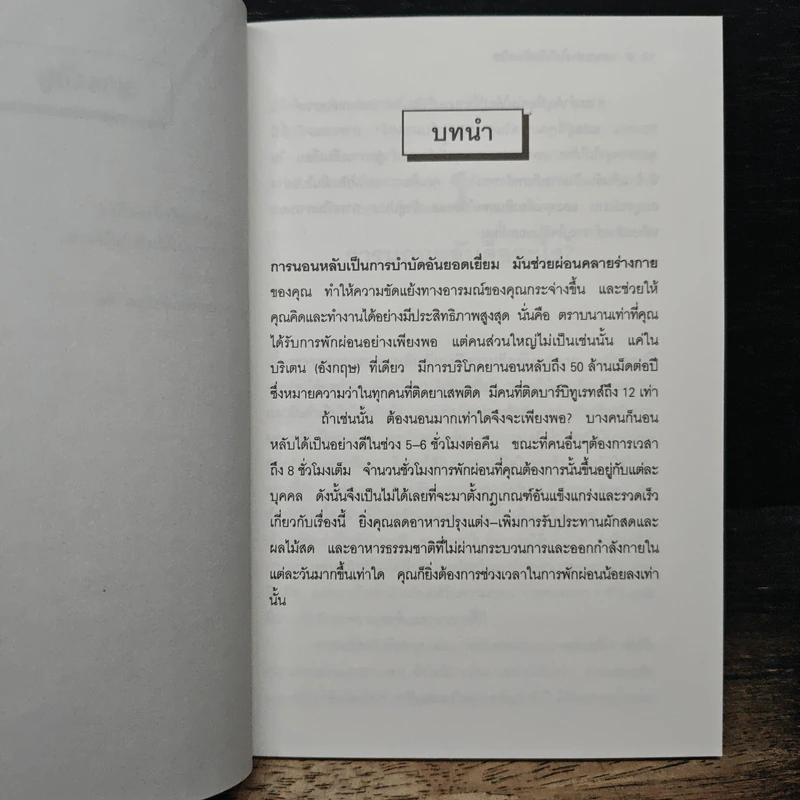 บทนำ
การนอนหลับเป็นการบำบัดอันยอดเยี่ยม มันช่วยผ่อนคลายร่างกาย
ของคุณ ทำให้ความขัดแย้งทางอารมณ์ของคุณกระจ่างขึ้น และช่วยให้
คุณคิดและทำงานได้อย่างมีประสิทธิภาพสูงสุด นั่นคือ ตราบนานเท่าที่คุณ
ได้รับการพักผ่อนอย่างเพียงพอ แต่คนส่วนใหญ่ไม่เป็นเช่นนั้น แค่ใน
บริเตน (อังกฤษ) ที่เดียว มีการบริโภคยานอนหลับถึง 50 ล้านเม็ดต่อปี
ซึ่งหมายความว่าในทุกคนที่ติดยาเสพติด มีคนที่ติดบาร์บิทูเรทส์ถึง 12 เท่า
ถ้าเช่นนั้น ต้องนอนมากเท่าใดจึงจะเพียงพอ? บางคนก็นอน
หลับได้เป็นอย่างดีในช่วง 5-6 ชั่วโมงต่อคืน ขณะที่คนอื่นๆต้องการเวลา
ถึง 8 ชั่วโมงเต็ม จำนวนชั่วโมงการพักผ่อนที่คุณต้องการนั้นขึ้นอยู่กับแต่ละ
บุคคล ดังนั้นจึงเป็นไม่ได้เลยที่จะมาตั้งกฎเกณฑ์อันแข็งแกร่งและรวดเร็ว
เกี่ยวกับเรื่องนี้ ยิ่งคุณลดอาหารปรุงแต่ง-เพิ่มการรับประทานผักสดและ
ผลไม้สด และอาหารธรรมชาติที่ไม่ผ่านกระบวนการและออกกำลังกายใน
แต่ละวันมากขึ้นเท่าใด คุณก็ยิ่งต้องการช่วงเวลาในการพักผ่อนน้อยลงเท่า
นั้น